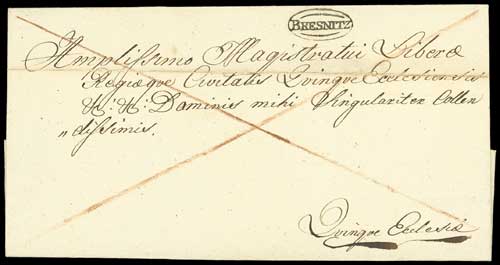 BRESNITZ
Amplissimo Magistratui Liberæ
Regiæque Civitatis Quinque Ecclesiensis
&: &: Dominis mihi Singulariter Collen
"dissimis.
Quinque Ecclesiæ